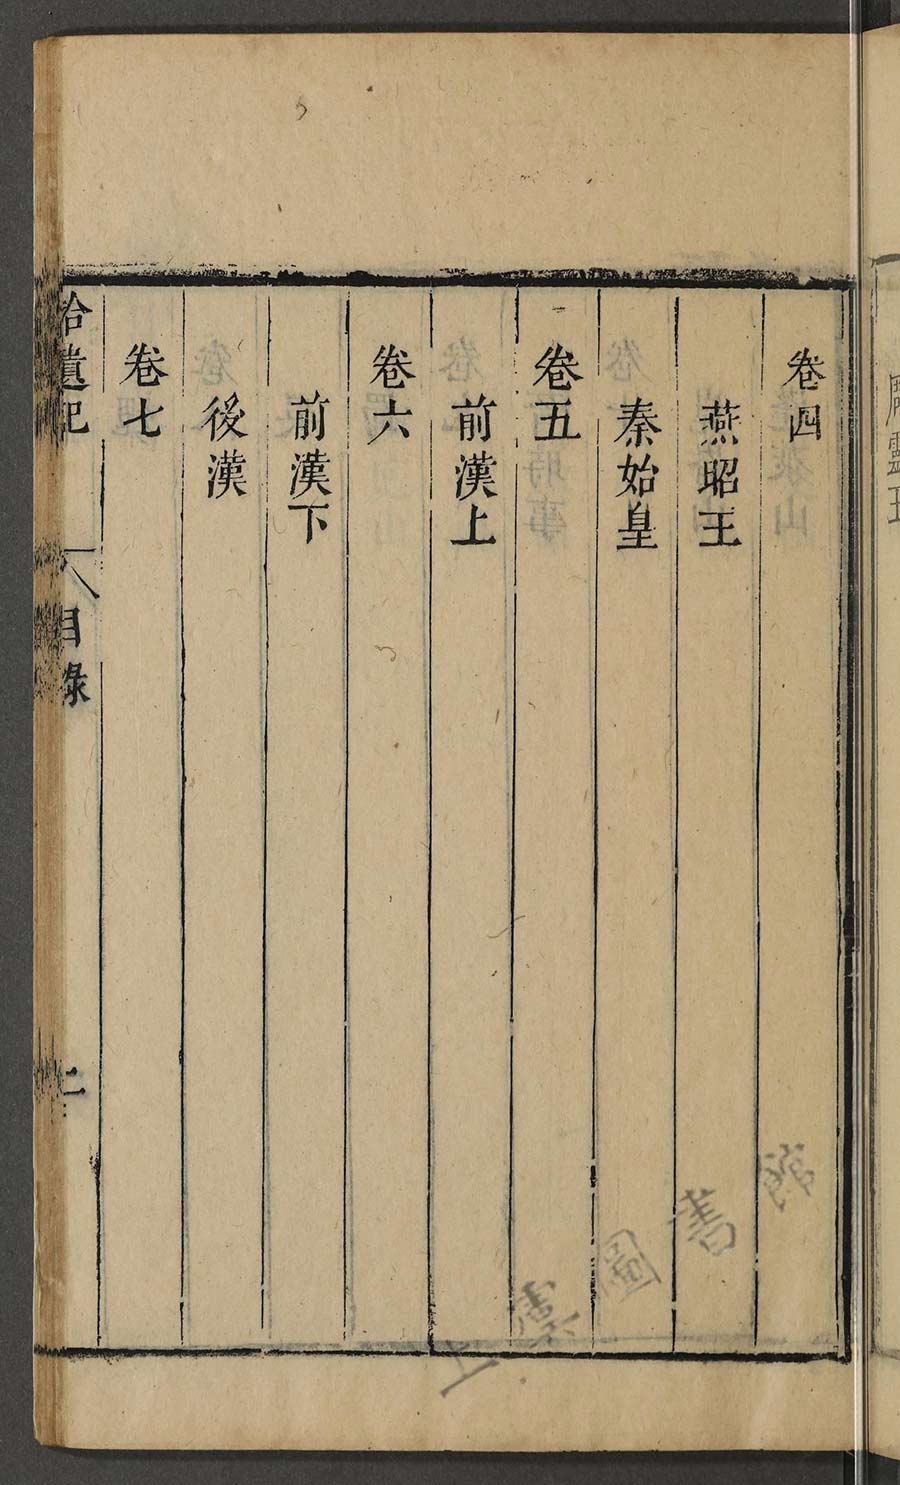 卷四
燕昭王
秦始皇
卷五
前漢上
卷六
前漢下
後漢
卷七
拾遺記
目錄
二
上虞圖書館